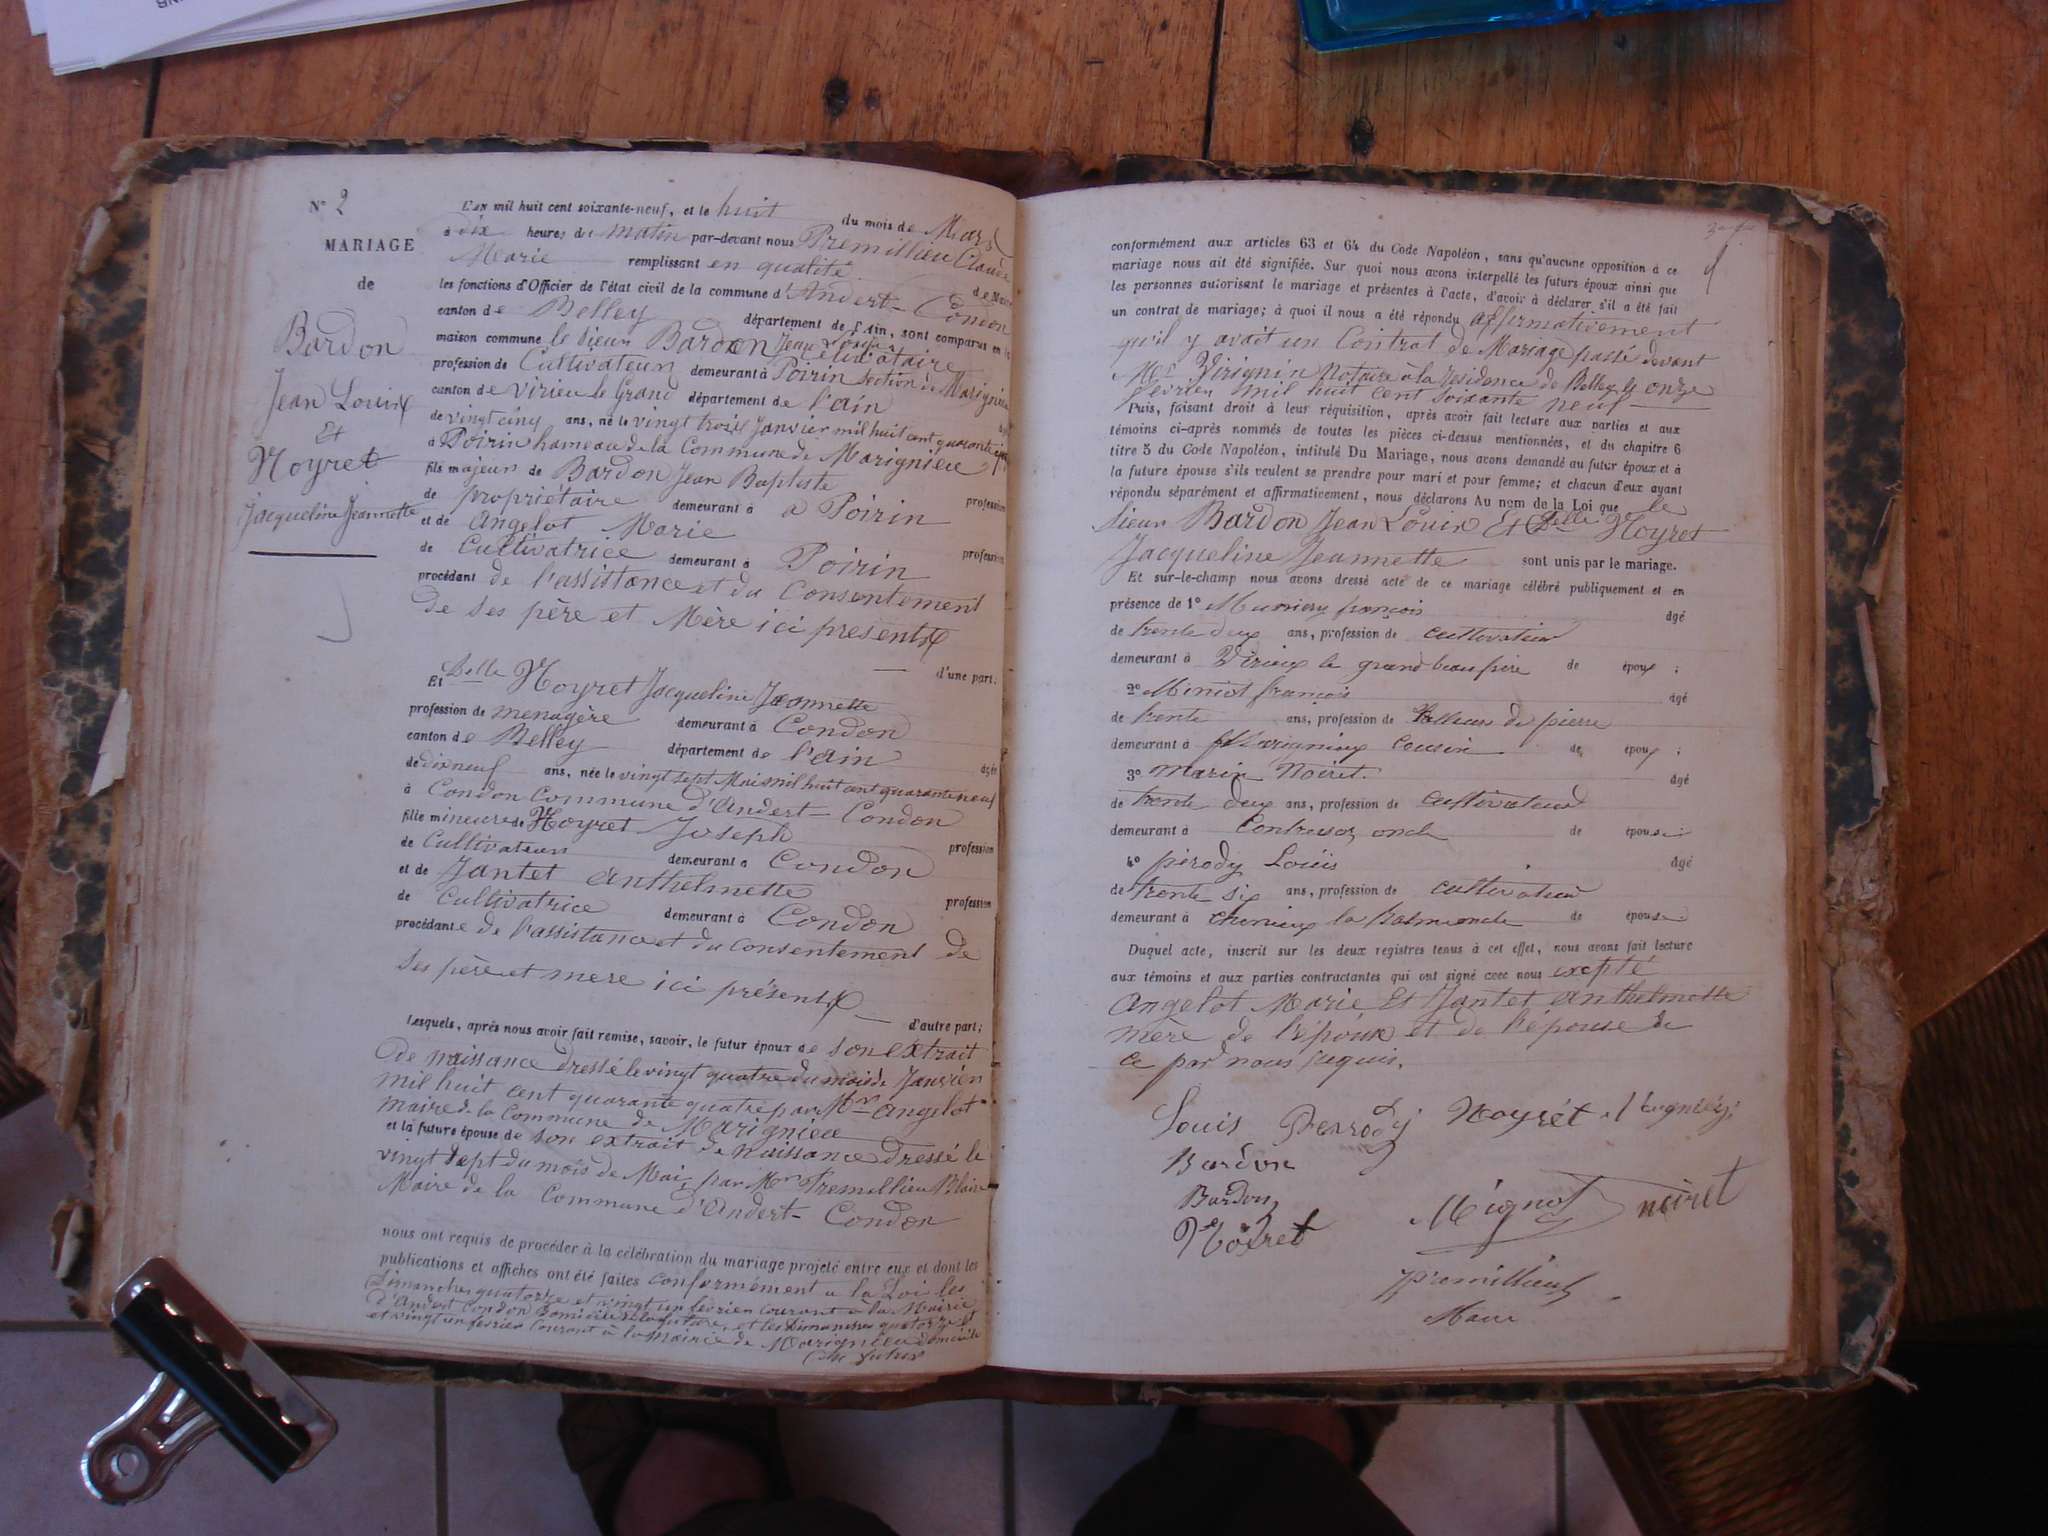 N° 2
MARIAGE
de
Bardon
Jean Louis
Et
Noyret
Jacqueline Jeannette
L'an mil huit cent soixante-neuf, et le huit du mois de Mars
à dix heures du matin par-devant nous Premillieu Claude
Marie remplissant en qualité de Maire
les fonctions d'Officier de l'état civil de la commune d'Andert-Condon
canton de Belley département de l'Ain, sont comparus en la
maison commune le sieur Bardon Jean Louis célibataire
profession de Cultivateur demeurant à Poirin section de Marignieu
canton de Virieu le Grand département de l'ain
de vingt cinq ans, né le vingt trois Janvier mil huit cent quarante
à Poirin hameau de la Commune de Marignieu
fils majeur de Bardon Jean Baptiste profession
de propriétaire demeurant à a Poirin
et de Angelot Marie profession
de Cultivatrice demeurant à Poirin
procédant de l'assistance et du Consentement
de ses père et Mère ici présents
d'une part;
Et Delle Noyret Jacqueline Jeannette
profession de menagère demeurant à Condon
canton de Belley département de l'ain âgée
de dix neuf ans, née le vingt sept Mai mil huit cent quarante neuf
à Condon Commune d'Andert-Condon
fille mineure de Noyret Joseph profession
de Cultivateur demeurant à Condon
et de Jantet Anthelmette profession
de Cultivatrice demeurant à Condon
procédant e de l'assistance et du consentement de
ses père et mere ici présents
d'autre part;
Lesquels, après nous avoir fait remise, savoir, le futur époux de son extrait
de naissance dressé le vingt quatre du mois de Janvier
mil huit cent quarante quatre par Mr Angelot
maire de la Commune de Marignieu
et la future épouse de son extrait de Naissance dressé le
vingt sept du mois de Mai, par Mr Premillieu Blaise
Maire de la Commune d'Andert-Condon
nous ont requis de procéder à la célébration du mariage projeté entre eux et dont les
publications et affiches ont été faites conformément a la Loi les
Dimanches quatorze et vingt un février courant a la Mairie
d'Andert Condon Domicile de la future, et les Dimanches quatorze et
et vingt un fevrier Courant à la mairie de Marignieu domicile
du futur
conformément aux articles 63 et 64 du Code Napoléon, sans qu'aucune opposition à ce
mariage nous ait été signifiée. Sur quoi nous avons interpellé les futurs époux ainsi que
les personnes autorisant le mariage et présentes à l'acte, d'avoir à déclarer s'il a été fait
un contrat de mariage; à quoi il nous a été répondu affirmativement
qu'il y avait un Contrat de Mariage passé devant
Me Virignin Notaire à la residence de Belley le onze
fevrier mil huit cent soixante neuf
Puis, faisant droit à leur réquisition, après avoir fait lecture aux parties et aux
témoins ci-après nommés de toutes les pièces ci-dessus mentionnées, et du chapitre 6
titre 5 du Code Napoléon, intitulé Du Mariage, nous avons demandé au futur époux et à
la future épouse s'ils veulent se prendre pour mari et pour femme; et chacun d'eux ayant
répondu séparément et affirmativement, nous déclarons Au nom de la Loi que le
Sieur Bardon Jean Louis Et Delle Noyret
Jacqueline Jeannette sont unis par le mariage.
Et sur-le-champ nous avons dressé acte de ce mariage célébré publiquement et en
présence de 1° françois âgé
de trente deux ans, profession de cultivateur
demeurant à Virieux le grand beau frère de époux ;
2° Miniot françois âgé
de trente ans, profession de tailleur de pierre
demeurant à cousin de époux ;
3° Marin Noiret âgé
de trente deux ans, profession de cultivateur
demeurant à Contrevoz oncle de épouse
4° pérody Louis âgé
de trente six ans, profession de cultivateur
demeurant à chenieux la balme oncle de épouse
Duquel acte, inscrit sur les deux registres tenus à cet effet, nous avons fait lecture
aux témoins et aux parties contractantes qui ont signé avec nous excepté
Angelot Marie Et Jantet Anthelmette
mère de l'époux et de l'épouse de
ce par nous requis.
Louis Perrody Noyrét
Bardon
Bardon Mignot noiret
Noyret
Premillieu
Maire